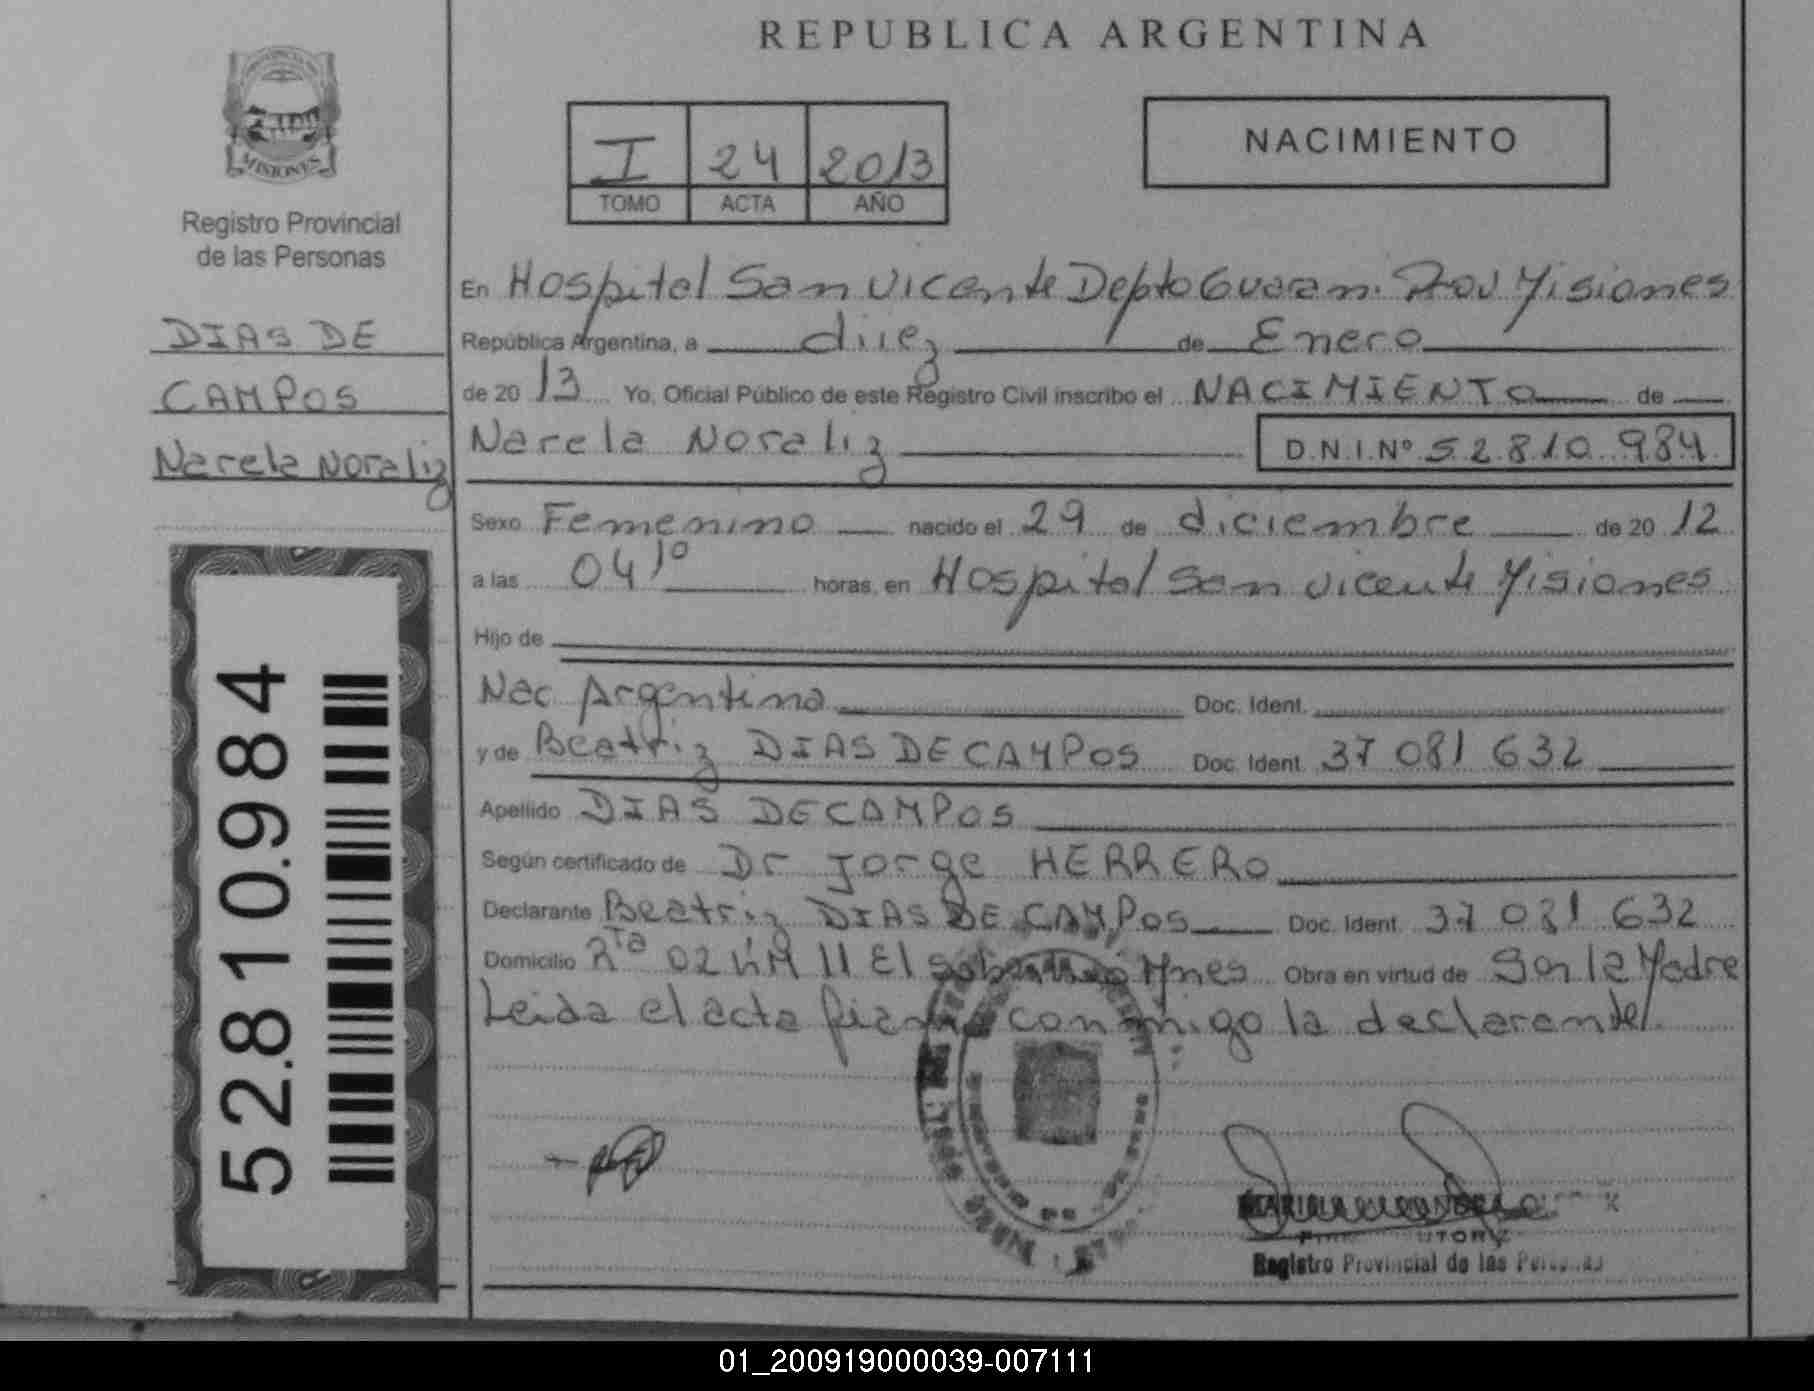 REPUBLICA ARGENTINA
MISIONES
Registro Provincial
de las Personas
DIAS DE
CAMPOS
Narela Noraliz
52.810.984
I 24 2013
TOMO ACTA AÑO
NACIMIENTO
En Hospital San Vicente Depto Guarani Prov Misiones
República Argentina, a diez de Enero
de 2013 Yo, Oficial Público de este Registro Civil inscribo el NACIMIENTO de
Narela Noraliz D.N.I.Nº 52.810.984
Sexo Femenino nacido el 29 de diciembre de 2012
a las 04 10 horas, en Hospital San Vicente Misiones
Hijo de
Nac. Argentina Doc. Ident.
y de Beatriz DIAS DE CAMPOS Doc. Ident. 37 081 632
Apellido DIAS DE CAMPOS
Según certificado de Dr Jorge HERRERO
Declarante Beatriz DIAS DE CAMPOS Doc. Ident. 37 081 632
Domicilio Rta 02 KM 11 El Mnes Obra en virtud de Ser la Madre
Leida el acta firma conmigo la declarante
Registro Provincial de las Personas
01_200919000039-007111